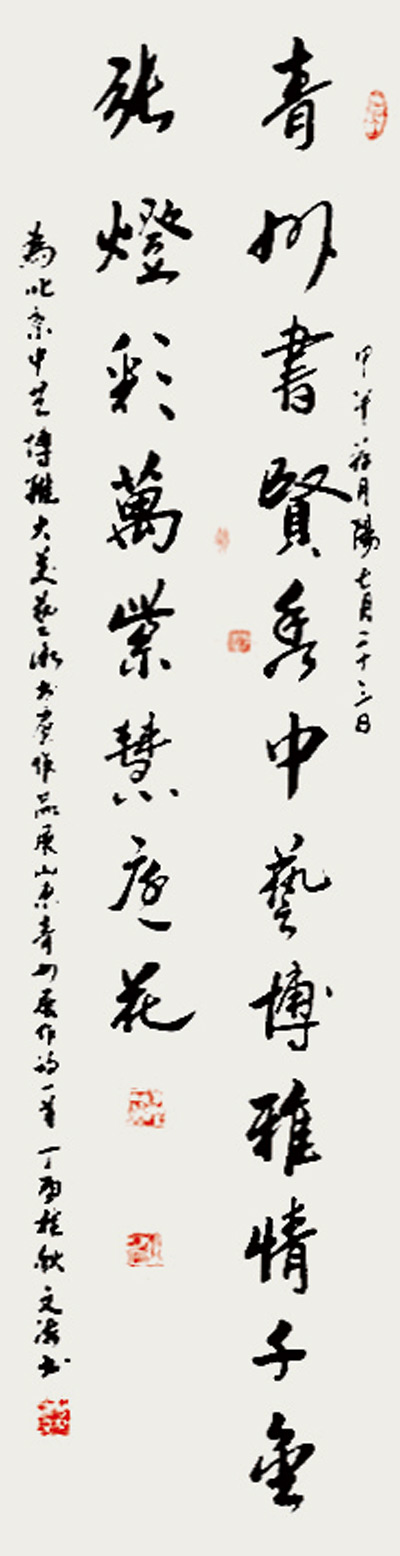 甲午荷月陽七月二十三日
青州書賢秀中藝博雅情子金
張燈彩萬紫慧庭花
為北京中艺博雅大美艺术书画作品展山东青州展作诗一首 丁酉桂秋文 书